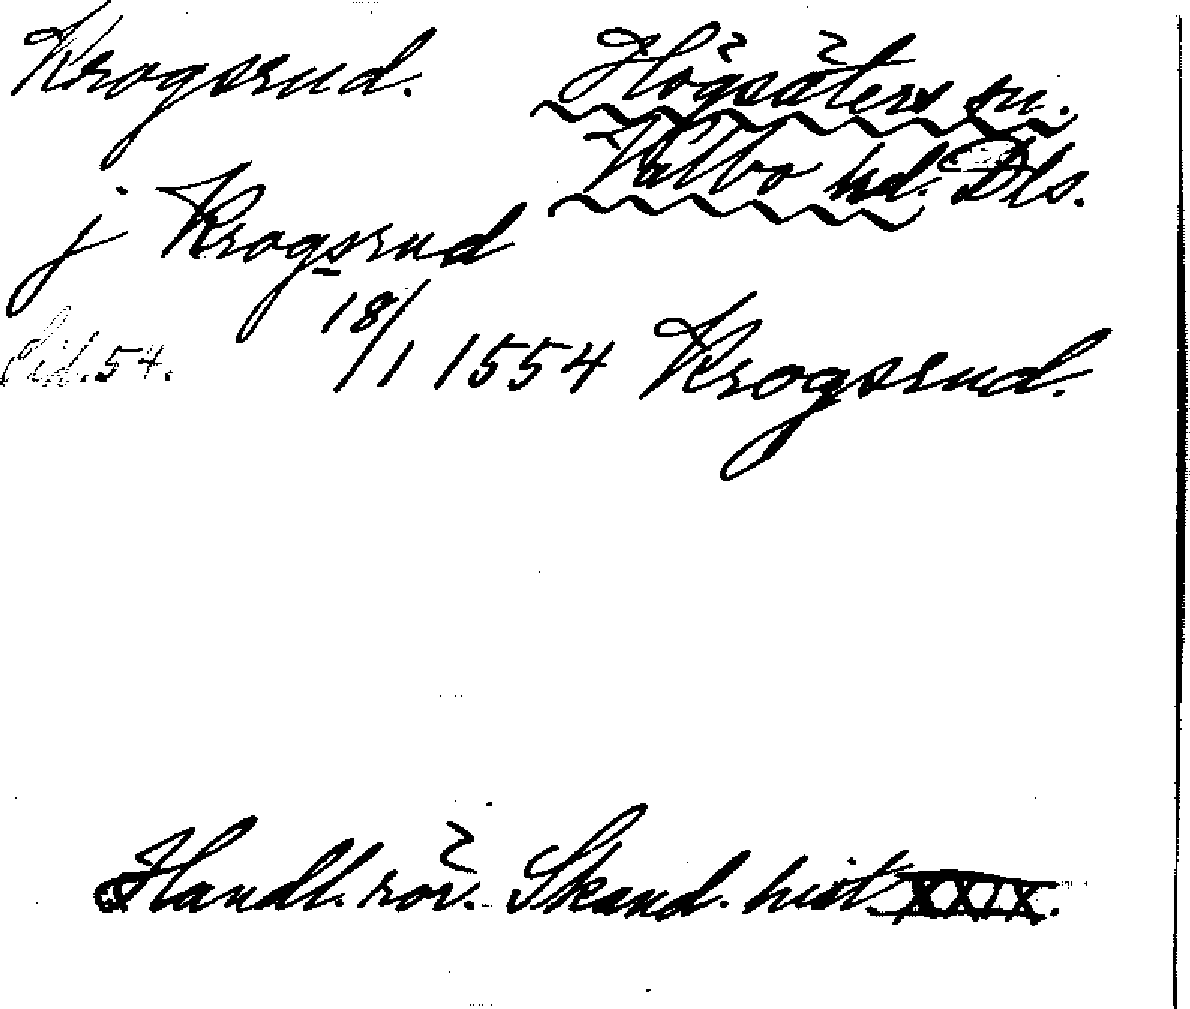 Krogsrud. Högsäters sn.
Valbo hd. Dls.
j Krogsrud
Sid. 54. 18/1 1554 Krogsrud.
Handl. rör. Skand. hist. XXIX.